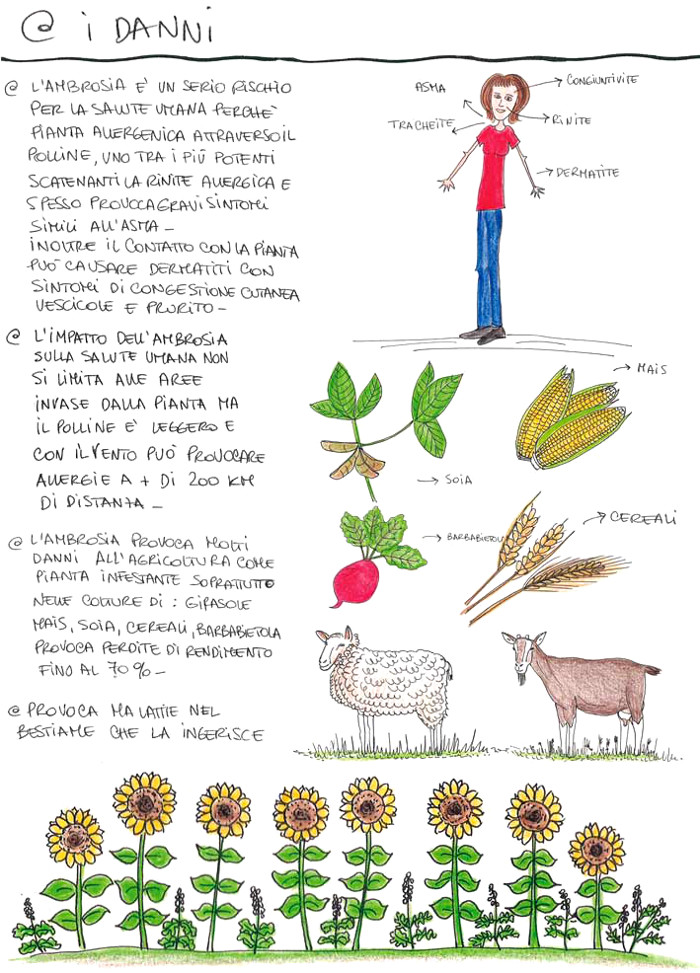 @ i DANNI
@ L'AMBROSIA E' UN SERIO RISCHIO
PER LA SALUTE UMANA PERCHE'
PIANTA ALLERGENICA ATTRAVERSO IL
POLLINE, UNO TRA I PIÚ POTENTI
SCATENANTI LA RINITE ALLERGICA E
SPESSO PROVOCA GRAVI SINTOMI
SIMILI ALL'ASMA –
INOLTRE IL CONTATTO CON LA PIANTA
PUO' CAUSARE DERMATITI CON
SINTOMI DI CONGESTIONE CUTANEA
VESCICOLE E PRURITO –
@ L'IMPATTO DELL'AMBROSIA
SULLA SALUTE UMANA NON
SI LIMITA ALLE AREE
INVASE DALLA PIANTA MA
IL POLLINE E' LEGGERO E
CON IL VENTO PUÒ PROVOCARE
ALLERGIE A + DI 200 KM
DI DISTANZA –
@ L'AMBROSIA PROVOCA MOLTI
DANNI ALL'AGRICOLTURA COME
PIANTA INFESTANTE SOPRATTUTTO
NELLE COLTURE DI : GIRASOLE
MAIS, SOIA, CEREALI, BARBABIETOLA
PROVOCA PERDITE DI RENDIMENTO
FINO AL 70% –
@ PROVOCA MALATTIE NEL
BESTIAME CHE LA INGERISCE
ASMA
CONGIUNTIVITE
TRACHEITE
RINITE
DERMATITE
MAIS
SOIA
BARBABIETOLA
CEREALI